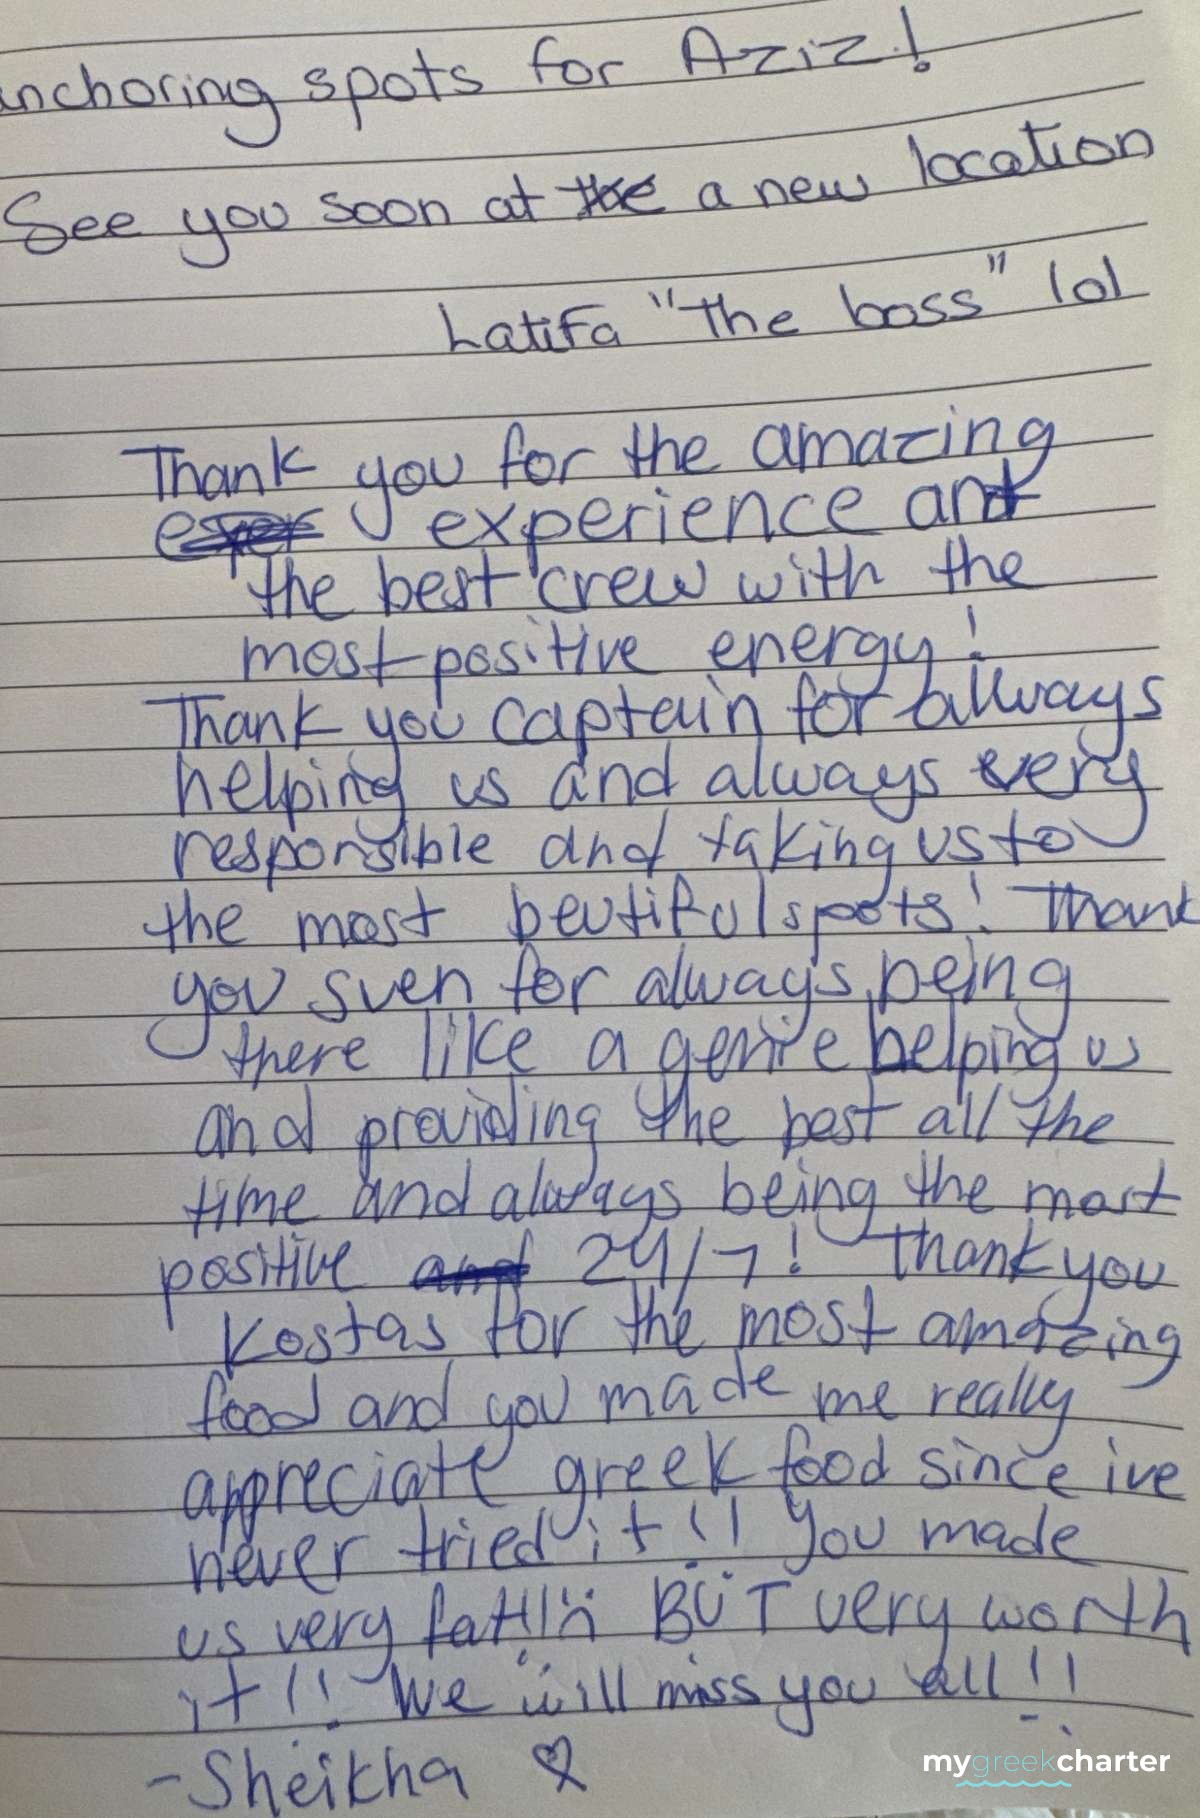 anchoring spots for Aziz!
See you soon at the a new location
Latifa "the boss" lol
Thank you for the amazing
exper experience and
the best crew with the
most positive energy!
Thank you captain for always
helping us and always very
responsible and taking us to
the most beutiful spots! Thank
you sven for always being
there like a genie helping us
and providing the best all the
time and always being the most
positive and 24/7! Thank you
Kostas for the most amazing
food and you made me really
appreciate greek food since ive
never tried it!! You made
us very fat!! BUT very worth
it!! We will miss you all!!
-Sheikha
mygreekcharter